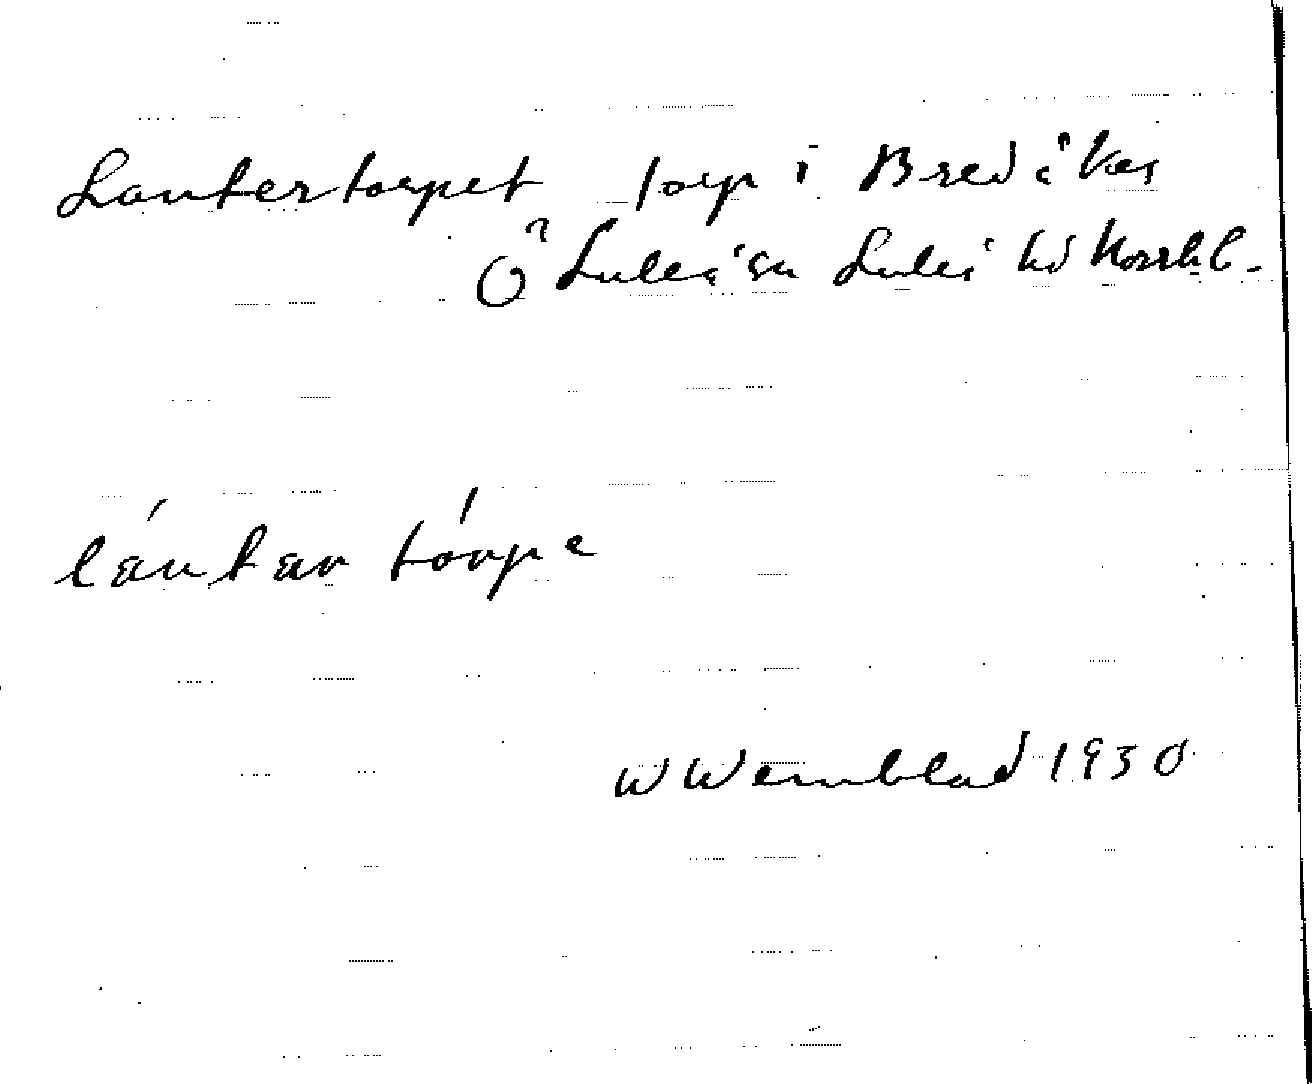 Lantertorpet torp i Bredåker
Ö Luleå sn Luleå hd Norrb.
lánkar tórpe
W Wennblad 1930